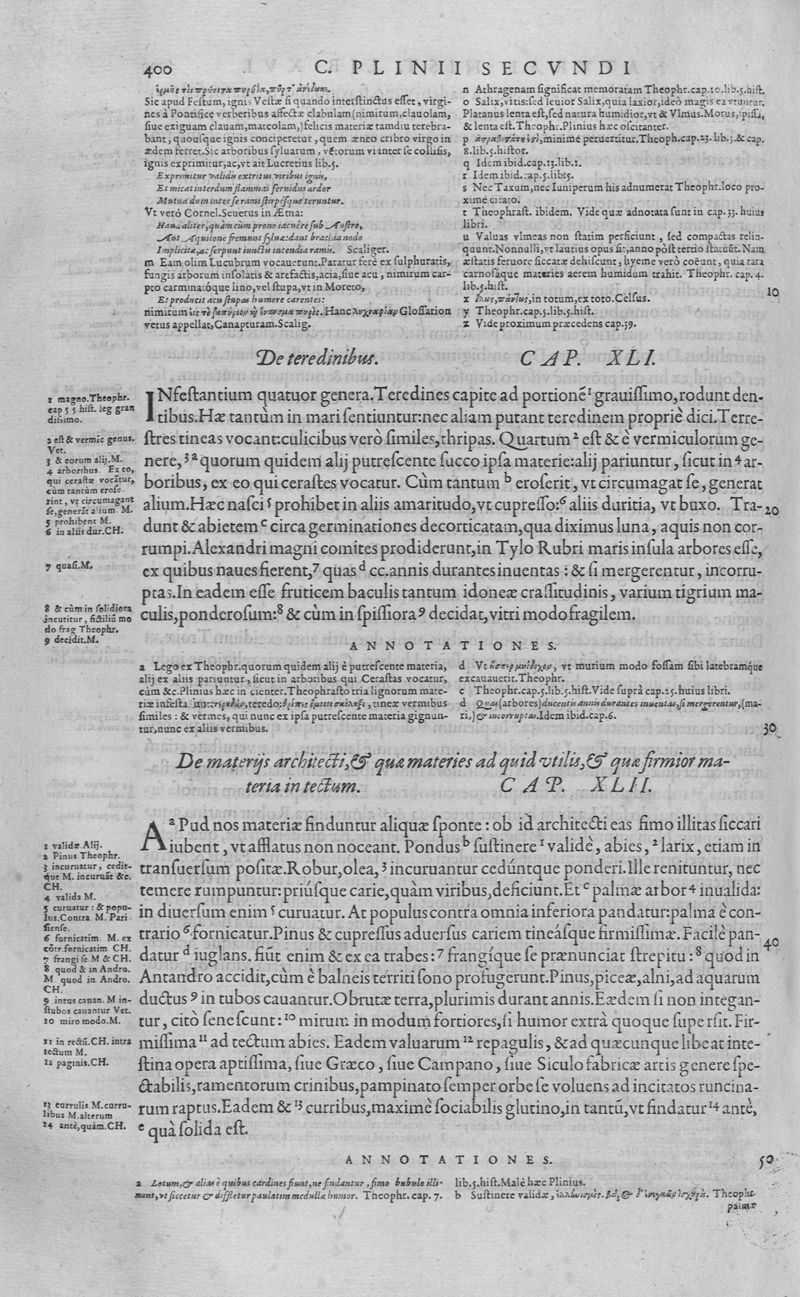 400 C. PLINII SECVNDI
Sic apud Festum, ignis Vestæ si quando interstinctus esset, virgi-
nes à Pontifice verberibus affectæ clabulam (nimirum, clauolam,
siue exiguam clauam, mateolam,) felicis materiæ tamdiu terebra-
bant, quousque ignis conciperetur, quem æneo cribro virgo in
ædem ferret. Sic arboribus syluarum, ventorum vi inter se collisis,
ignis exprimitur, ac, vt ait Lucretius lib. 5.
Exprimitur validis extritus viribus ignis,
Et micat interdum flammai feruidus ardor
Mutua dum inter se rami stirpésque teruntur.
Vt verò Cornel. Seuerus in Ætna:
Haud aliter, quàm cùm prono iacuêre sub Austro,
Aut Aquilone fremunt syluæ: dant brachia nodo
Implicitæ, ac serpunt iunctis incendia ramis. Scaliger.
m Eam olim Lucubrum vocauerunt. Paratur ferè ex sulphuratis,
fungis arborum insolatis & arefactis, acia, siue acu, nimirum car-
pto carmináque lino, vel stupa, vt in Moreto,
Et producit acu stupas humore carentes:
Glossarion
vetus appellat, Canapturam. Scalig.
n Athragenam significat memoratam Theophr. cap. 10. lib. 5. hist.
o Salix, vitis: sed leuior Salix, quia laxior, ideò magis ea vtuntur.
Platanus lenta est, sed natura humidior, vt & Vlmus. Morus, spissa,
& lenta est. Theophr. Plinius hæc oscitanter.
p minimè peruertitur. Theoph. cap. 23. lib. 5. & cap.
8. lib. 5. histor.
q Idem ibid. cap. 13. lib. 1.
r Idem ibid. cap. 5. lib. 5.
s Nec Taxum, nec Iuniperum his adnumerat Theophr. loco pro-
ximè citato.
t Theophrast. ibidem. Vide quæ adnotata sunt in cap. 33. huius
libri.
u Valuas vlmeas non statim perficiunt, sed compactas relin-
quunt. Nonnulli, vt lautius opus sit, anno pòst tertio statuût. Nam
æstatis feruore siccatæ dehiscunt, hyeme verò coëunt, quia rara
carnosáque materies aerem humidum trahit. Theophr. cap. 4.
lib. 5. hist. 10
x in totum, ex toto. Celsus.
y Theophr. cap. 5. lib. 5. hist.
z Vide proximum præcedens cap. 39.
De teredinibus. CAP. XLI.
INfestantium quatuor genera. Teredines capite ad portioné¹ grauissimo, rodunt den-
tibus. Hæ tantùm in mari sentiuntur: nec aliam putant teredinem propriè dici. Terre-
stres tineas vocant: culicibus verò similes, thripas. Quartum² est & è vermiculorum ge-
nere,³ ª quorum quidem alij putrescente succo ipsa materie: alij pariuntur, sicut in⁴ ar-
boribus, ex eo qui cerastes vocatur. Cùm tantum ᵇ eroserit, vt circumagat se, generat
alium. Hæc nasci⁵ prohibet in aliis amaritudo, vt cupresso:⁶ aliis duritia, vt buxo. Tra- 20
dunt & abietem ᶜ circa germinationes decorticatam, qua diximus luna, aquis non cor-
rumpi. Alexandri magni comites prodiderunt, in Tylo Rubri maris insula arbores esse,
ex quibus naues fierent,⁷ quas ᵈ cc. annis durantes inuentas: & si mergerentur, incorru-
ptas. In eadem esse fruticem baculis tantum idoneæ crassitudinis, varium tigrium ma-
culis, ponderosum:⁸ & cùm in spissiora⁹ decidat, vitri modo fragilem.
1 magno. Theophr.
cap 5 5. hist. leg gran
dissimo.
2 est & vermic genus.
Vet.
3 & eorum alij. M.
4 arboribus. Ex eo,
qui cerastæ vocãtur,
cùm tantùm erose-
rint, vt circumagant
se, generãt alium. M.
5 prohibent M.
6 in aliis dur. CH.
7 quasi. M.
8 & cùm in solidiora
incutitur, fictiliũ mo
do frag Theophr.
9 decidit. M.
ANNOTATIONES.
a Lego ex Theophr. quorum quidem alij è putrescente materia,
alij ex aliis pariuntur, sicut in arboribus qui Cerastas vocatur,
cùm &c. Plinius hæc inscienter. Theophrasto tria lignorum mate-
riæ infesta tineæ vermibus
similes: & vermes, qui nunc ex ipsa putrescente materia gignun-
tur, nunc ex aliis vermibus.
d Vt vt murium modo fossam sibi latebramque
excauauerit. Theophr.
c Theophr. cap. 5. lib. 5. hist. Vide suprà cap. 25. huius libri.
d Quas (arbores) ducentis annis durantes inuentas, si mergerentur, (ma-
ri,) & incorruptas. Idem ibid. cap. 6. 30
De materijs architecti, & quæ materies ad quid vtilis, & quæ firmior ma-
teria in tectum. CAP. XLII.
Aª Pud nos materiæ finduntur aliquæ sponte: ob id architecti eas fimo illitas siccari
iubent, vt afflatus non noceant. Pondus ᵇ sustinere ¹ validè, abies, ² larix, etiam in
transuersum positæ. Robur, olea, ³ incuruantur cedúntque ponderi. Ille renituntur, nec
temere rumpuntur: priúsque carie, quàm viribus, deficiunt. Et ᶜ palmæ arbor⁴ inualida:
in diuersum enim ⁵ curuatur. At populus contra omnia inferiora pandatur: palma è con-
trario ⁶ fornicatur. Pinus & cupressus aduersus cariem tineásque firmissimæ. Facilè pan-
datur ᵈ iuglans. fiût enim & ex ea trabes:⁷ frangíque se prænunciat strepitu:⁸ quod in 40
Antandro accidit, cùm è balneis territi sono profugerunt. Pinus, piceæ, alni, ad aquarum
ductus⁹ in tubos cauantur. Obrutæ terra, plurimis durant annis. Eædem si non integan-
tur, citò senescunt:¹⁰ mirum in modum fortiores, si humor extrà quoque supersit. Fir-
missima¹¹ ad tectum abies. Eadem valuarum¹² repagulis, & ad quæcunque libeat inte-
stina opera aptissima, siue Græco, siue Campano, siue Siculo fabricæ artis genere spe-
ctabilis, ramentorum crinibus, pampinato semper orbe se voluens ad incitatos runcina-
rum raptus. Eadem & ¹³ curribus, maximè sociabilis glutino, in tantũ, vt findatur¹⁴ antè,
ᵉ quà solida est.
1 validæ. Alij.
2 Pinus Theophr.
3 incuruatur, cedit-
que M. incuruât &c.
CH.
4 valida M.
5 curuatur: & popu-
lus. Contra M. Pari
siense.
6 fornicatim M. ex
côtr. fornicatim CH.
7 frangi se M & CH.
8 quod & in Andro.
M quod in Andro.
CH.
9 intus cauan. M in-
stubos cauantur Vet.
10 miro modo. M.
11 in rectũ. CH. intra
tectum M.
12 paginis. CH.
13 curulis M. curru-
libus M. alterum
14 antè, quàm. CH.
ANNOTATIONES. 50
a Lotum, & alias è quibus cardines fiunt, ne findantur, fimo bubulo illi-
nunt, vt siccetur & diffletur paulatim medullæ humor. Theophr. cap. 7.
lib. 5. hist. Malè hæc Plinius.
b Sustinere validæ, Theophr.
palmæ